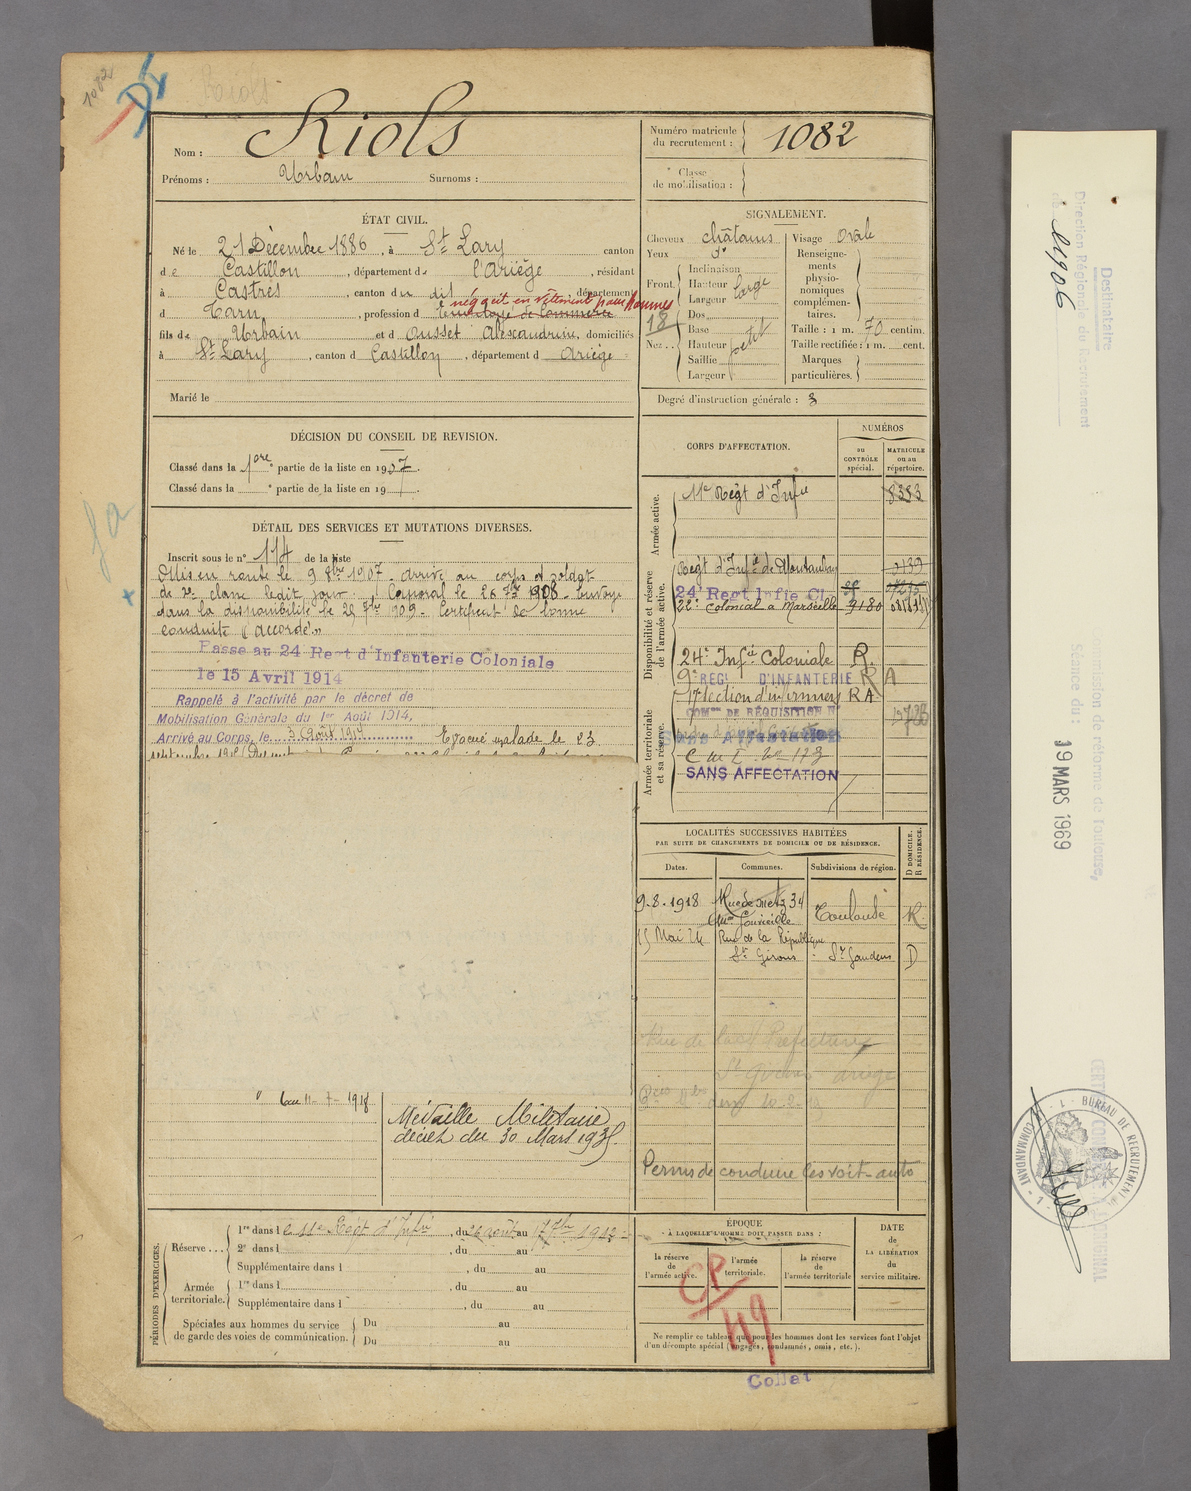 1082
Riols
Nom : Riols
Prénoms : Urbain Surnoms :
Numéro matricule du recrutement : 1082
Classe de mobilisation :
ÉTAT CIVIL.
Né le 21 Décembre 1886, à St Lary canton
de Castillon, département de l'Ariège, résidant
à Castres, canton du dit, département
d Tarn, profession d négocit en vêtement pour hommes employé de commerce
fils de Urbain et d Ousset Alexandrine, domiciliés
à St Lary, canton d Castillon, département d Ariège
Marié le
SIGNALEMENT.
Cheveux châtains
Yeux do
Front. Inclinaison
Hauteur
Largeur
large
18
Nez.. Dos
Base
Hauteur
Saillie
Largeur
petit
Visage Ovale
Renseignements physionomiques complémentaires.
Taille : 1 m. 70 centim.
Taille rectifiée : 1 m. cent.
Marques particulières.
Degré d'instruction générale : 3
DÉCISION DU CONSEIL DE REVISION.
Classé dans la 1ore partie de la liste en 1907.
Classé dans la e partie de la liste en 19 .
DÉTAIL DES SERVICES ET MUTATIONS DIVERSES.
Inscrit sous le n° 114 de la liste
Mis en route le 9 8bre 1907. arrivé au corps et soldat
de 2e classe ledit jour. Caporal le 26 7bre 1908. Envoyé
dans la disponibilité le 25 7bre 1909. Certificat de bonne
conduite "accordé"
Passé au 24 Regt d'Infanterie Coloniale
le 15 Avril 1914
Rappelé à l'activité par le décret de
Mobilisation Générale du 1er Août 1914,
Arrivé au Corps, le 3 Août 1914 Evacué malade le 23
septembre 1915
11-7-1918
Médaille Militaire
décret du 30 Mars 1935
CORPS D'AFFECTATION.
NUMÉROS
DU CONTRÔLE spécial.
MATRICULE ou au répertoire.
Armée active.
11e Régt d'Infie 8383
Disponibilité et réserve de l'armée active.
Régt d'Infie de Montauban 0139
24 Regt Infie Cle
22e colonial à Marseille 9180
24e Infie Coloniale R.
9e REGt D'INFANTERIE R A
17e Section d'infirmiers R A
Armée territoriale et sa réserve.
COMon DE RÉQUISITION N°
Sans Affectation
SANS AFFECTATION
LOCALITÉS SUCCESSIVES HABITÉES
PAR SUITE DE CHANGEMENTS DE DOMICILE OU DE RÉSIDENCE.
Dates. Communes. Subdivisions de région. D DOMICILE. R RÉSIDENCE.
9-8-1918 Rue de Metz 34 Toulouse R
15 Mai 24 Rue de la République
St Girons St Gaudens D
Rue de la Préfecture
St Girons Ariège
Permis de conduire les voit-auto
PÉRIODES D'EXERCICES.
Réserve ... 1re dans le 11e Régt d'Infie, du 26 août au 17 7bre 1912
2e dans l , du au
Supplémentaire dans l , du au
Armée territoriale. 1re dans l , du au
Supplémentaire dans l , du au
Spéciales aux hommes du service de garde des voies de communication. Du au
Du au
ÉPOQUE
À LAQUELLE L'HOMME DOIT PASSER DANS :
la réserve de l'armée active. l'armée territoriale. la réserve de l'armée territoriale
DATE de LA LIBÉRATION du service militaire.
CP
49
Ne remplir ce tableau que pour les hommes dont les services font l'objet
d'un décompte spécial (engagés, condamnés, omis, etc.).
Collat
Destinataire
Direction Régionale du Recrutement
Commission de réforme de Toulouse,
Séance du : 19 MARS 1969
BUREAU DE RECRUTEMENT
COMMANDANT